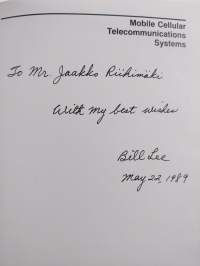 Mobile Cellular
Telecommunications
Systems
To Mr. Jaakko Riihimäki
With my best wishes
Bill Lee
May 22, 1989